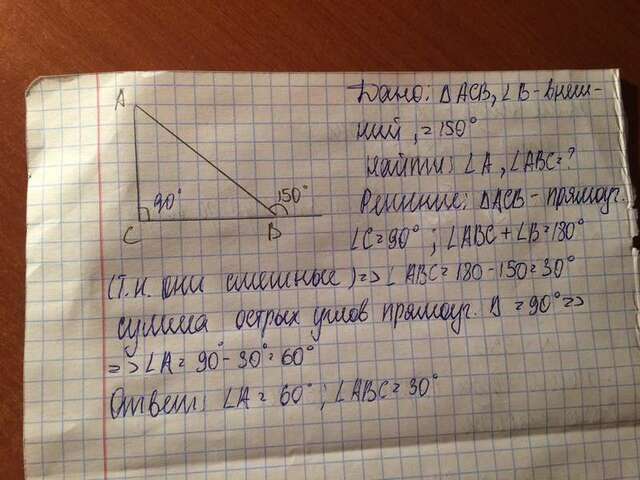 Дано: △ACB, ∠B - внеш-
ний, = 150°
найти: ∠A, ∠ABC = ?
Решение: △ACB - прямоуг.
∠C = 90° ; ∠ABC + ∠B = 180°
(т.к. они смежные) => ∠ABC = 180 - 150 = 30°
сумма острых углов прямоуг. △ = 90° =>
=> ∠A = 90° - 30° = 60°
Ответ: ∠A = 60° ; ∠ABC = 30°
A
C
90°
B
150°